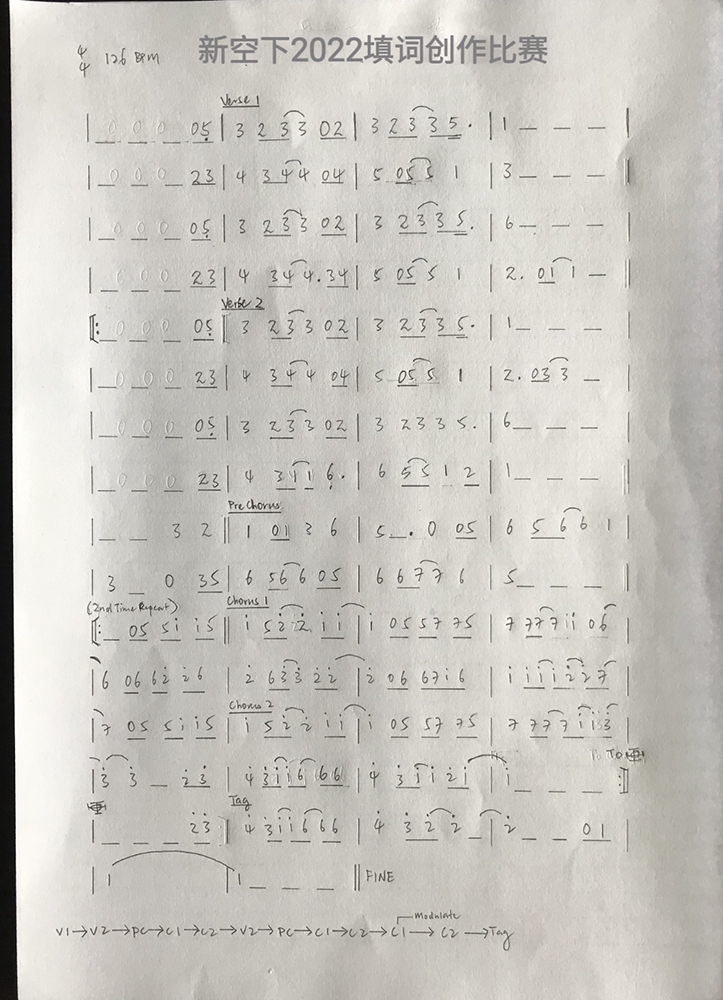 新空下2022填词创作比赛
4/4 126 BPM
Verse 1
| _ 0 _ 0 _ 0 _ 05̣ | 3 2 3 3 02 | 3 2 3 3 5̣. | 1 — — — |
| _ 0 _ 0 _ 0 _ 23 | 4 3 4 4 04 | 5 05 5 1 | 3 — — — ‖
| _ 0 _ 0 _ 0 _ 05̣ | 3 2 3 3 02 | 3 2 3 3 5̣. | 6 — — — |
| _ 0 _ 0 _ 0 _ 23 | 4 3 4 4. 34 | 5 05 5 1 | 2. 01 1 — ‖
Verse 2
[: _ 0 _ 0 _ 0 _ 05̣ ‖ 3 2 3 3 02 | 3 2 3 3 5̣. | 1 — — — |
| _ 0 _ 0 _ 0 _ 23 | 4 3 4 4 04 | 5 05 5 1 | 2. 03 3 — |
| _ 0 _ 0 _ 0 _ 05̣ | 3 2 3 3 02 | 3 2 3 3 5. | 6 — — — |
| _ 0 _ 0 _ 0 _ 23 | 4 3 1 1 6̣. | 6 5 5 1 2 | 1 — — — ‖
Pre Chorus
| — — 3 2 ‖ 1 01 3 6 | 5 —. 0 05 | 6 5 6 6 1 |
| 3 — 0 35 | 6 56 6 05 | 6 6 7 7 6 | 5 — — — |
(2nd Time Repeat) Chorus 1
[: — 05 5i i5 ‖ i 5 2̇ 2̇ i i | i 05 57 75 | 7 7 7 7 i i 06 |
| 6 06 62̇ 2̇6 | 2̇ 6 3̇ 3̇ 2̇ 2̇ | 2̇ 06 67 i6 | i i i i 2̇ 2̇ 7 |
Chorus 2
| 7 05 5i i5 | i 5 2̇ 2̇ i i | i 05 57 75 | 7 7 7 7 i i 3̇ |
TO
| 3̇ 3̇ — 2̇3̇ | 4̇ 3̇ i i 6 6 6 | 4̇ 3̇ i i 2̇ i | i — — — :]
Tag
| — — — 2̇3̇ ‖ 4̇ 3̇ i i 6 6 6 | 4̇ 3̇ 2̇ 2̇ — | 2̇ — — 01 |
| 1 | 1 — — — ‖ FINE
Modulate
V1→V2→PC→C1→C2→V2→PC→C1→C2→C1→C2→Tag